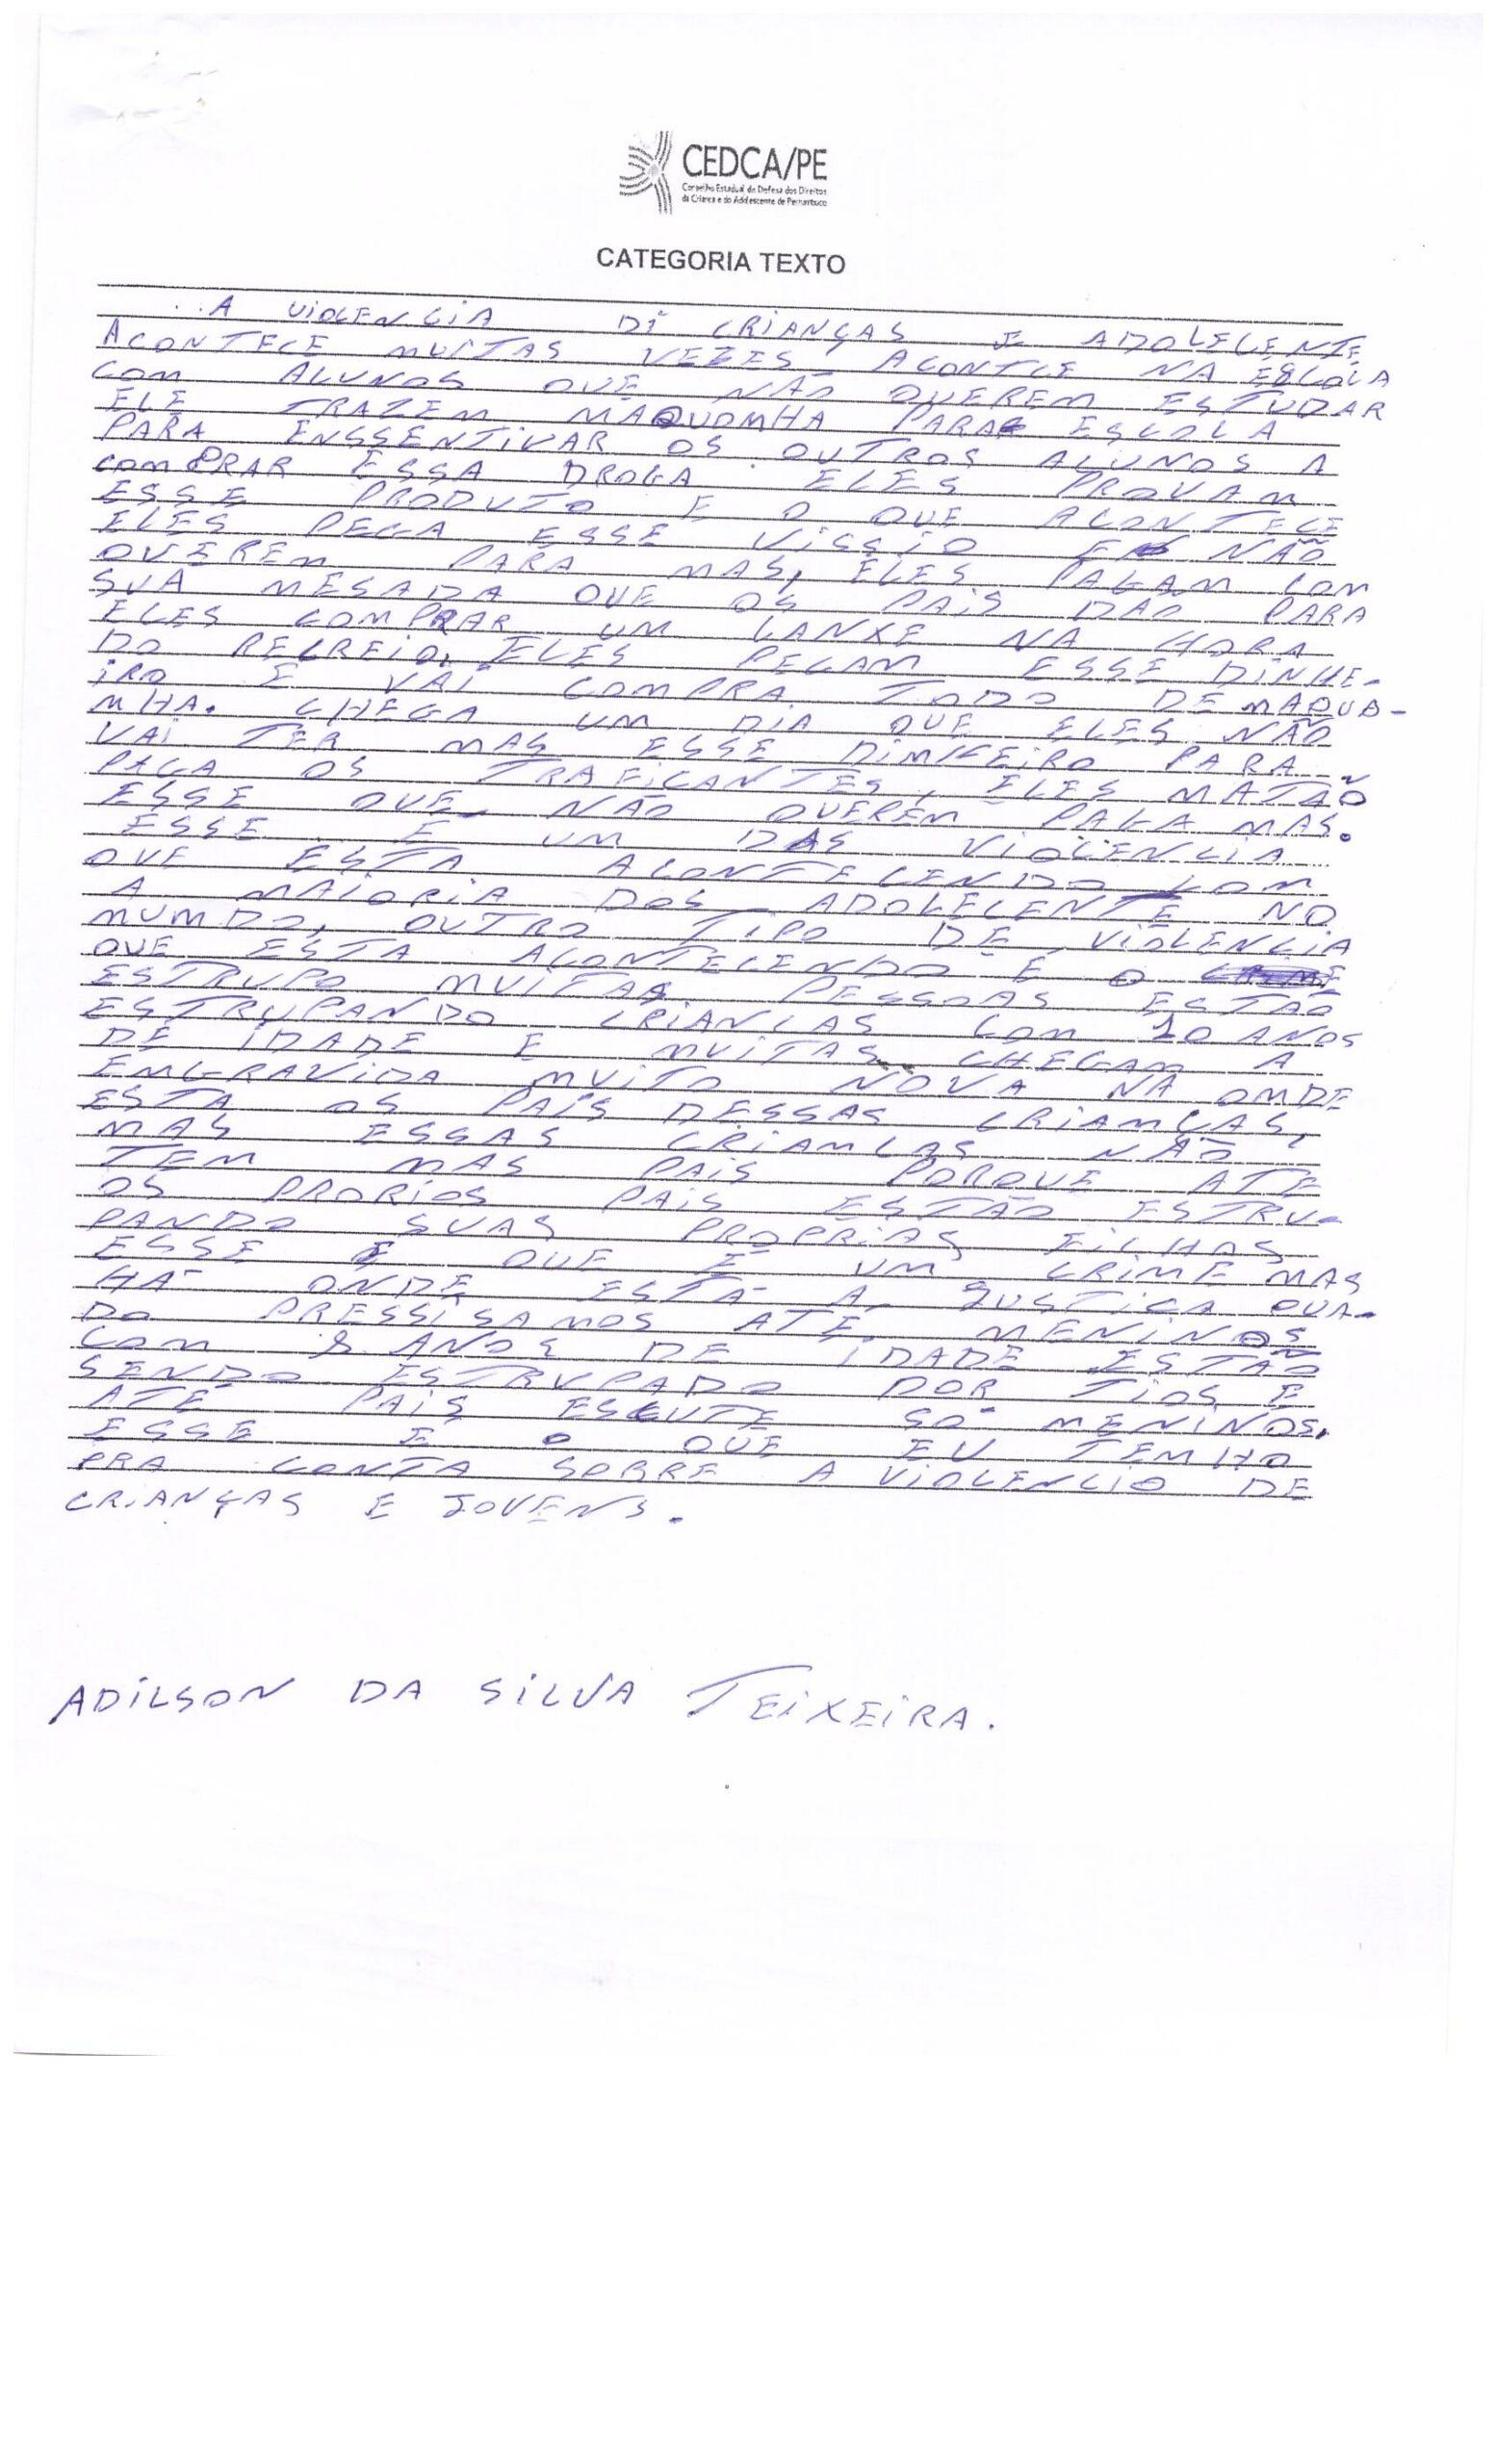 CEDCA/PE
Conselho Estadual de Defesa dos Direitos
da Criança e do Adolescente de Pernambuco
CATEGORIA TEXTO
A VIOLENCIA Di CRIANÇAS E ADOLECENTE
ACONTECE MUITAS VEZES, ACONTCE NA ESCOLA
COM ALUNOS QUE NÃO QUEREM ESTUDAR
ELE TRAZEM MAQUOMHA PARA ESCOLA
PARA ENSSENTIVAR OS OUTROS ALUNOS A
COMPRAR ESSA DROGA ELES PROVAM
ESSE PRODUTO E O QUE ACONTECE
ELES PEGA ESSE VISSIO E NÃO
QUEREM PARA MAS, ELES PAGAM COM
SUA MESADA QUE OS PAIS DÃO PARA
ELES COMPRAR UM LANXE NA HORA
DO RECREIO, ELES PEGAM ESSE DINHE-
IRO E VAI COMPRA TODO DE MAQUO-
MHA. CHEGA UM DIA QUE ELES NÃO
VAI TER MAS ESSE DIMHEIRO PARA
PAGA OS TRAFICANTES, ELES MATÃO
ESSE QUE NÃO QUEREM PAGA MAS.
ESSE É UM DAS VIOLENCIA
QUE ESTA ACONTECENDO COM
A MAIORIA DOS ADOLECENTE NO
MUMDO, OUTRO TIPO DE VIOLENCIA
QUE ESTA ACONTECENDO É O
ESTRUPO MUITAS PESSOAS ESTÃO
ESTRUPANDO CRIANCAS COM 10 ANOS
DE IDADE E MUITAS CHEGAM A
EMGRAVIDA MUITO NOVA NA OMDE
ESTA OS PAIS DESSAS CRIAMÇAS,
MAS ESSAS CRIAMCAS NÃO
TEM MAS PAIS PORQUE ATE
OS PRORIOS PAIS ESTÃO ESTRU-
PANDO SUAS PROPRIAS FILHAS
ESSE E QUE É UM CRIME MAS
HÁ ONDE ESTÁ A JUSTICA QUA-
DO PRESSISAMOS ATÉ MENINOS
COM 8 ANOS DE IDADE ESTÃO
SENDO ESTRUPADO POR TIOS E
ATÉ PAIS ESCUTE SÓ MENINOS,
ESSE E O QUE EU TEMHO
PRA CONTA SOBRE A VIOLENCIO DE
CRIANÇAS E JOVENS.
ADILSON DA SILVA TEIXEIRA.